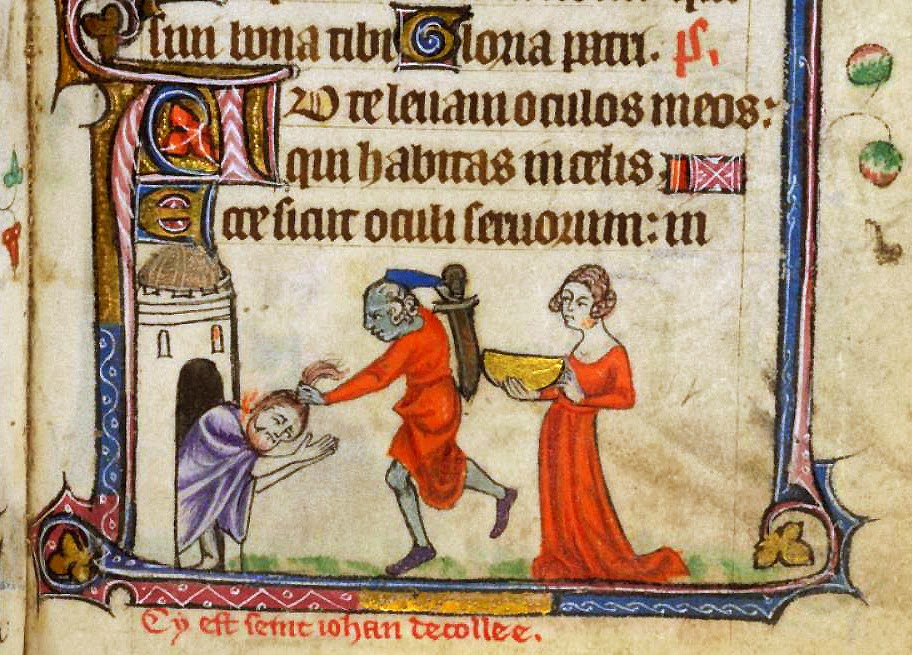 sun bona tibi Gloria patri. ps.
AD te leuaui oculos meos:
qui habitas in celis
Ecce sicut oculi seruorum: in
Cy est seint iohan decollee.